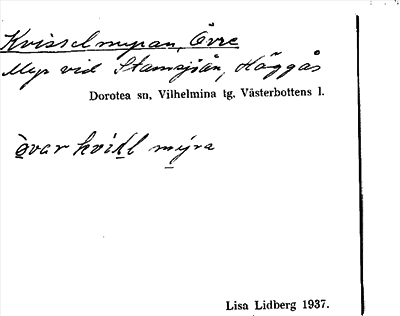 Kvisselmyran, Övre
Myr vid Stamsjön, Häggås
Dorotea sn, Vilhelmina tg. Västerbottens l.
övar kvisl mýra
Lisa Lidberg 1937.